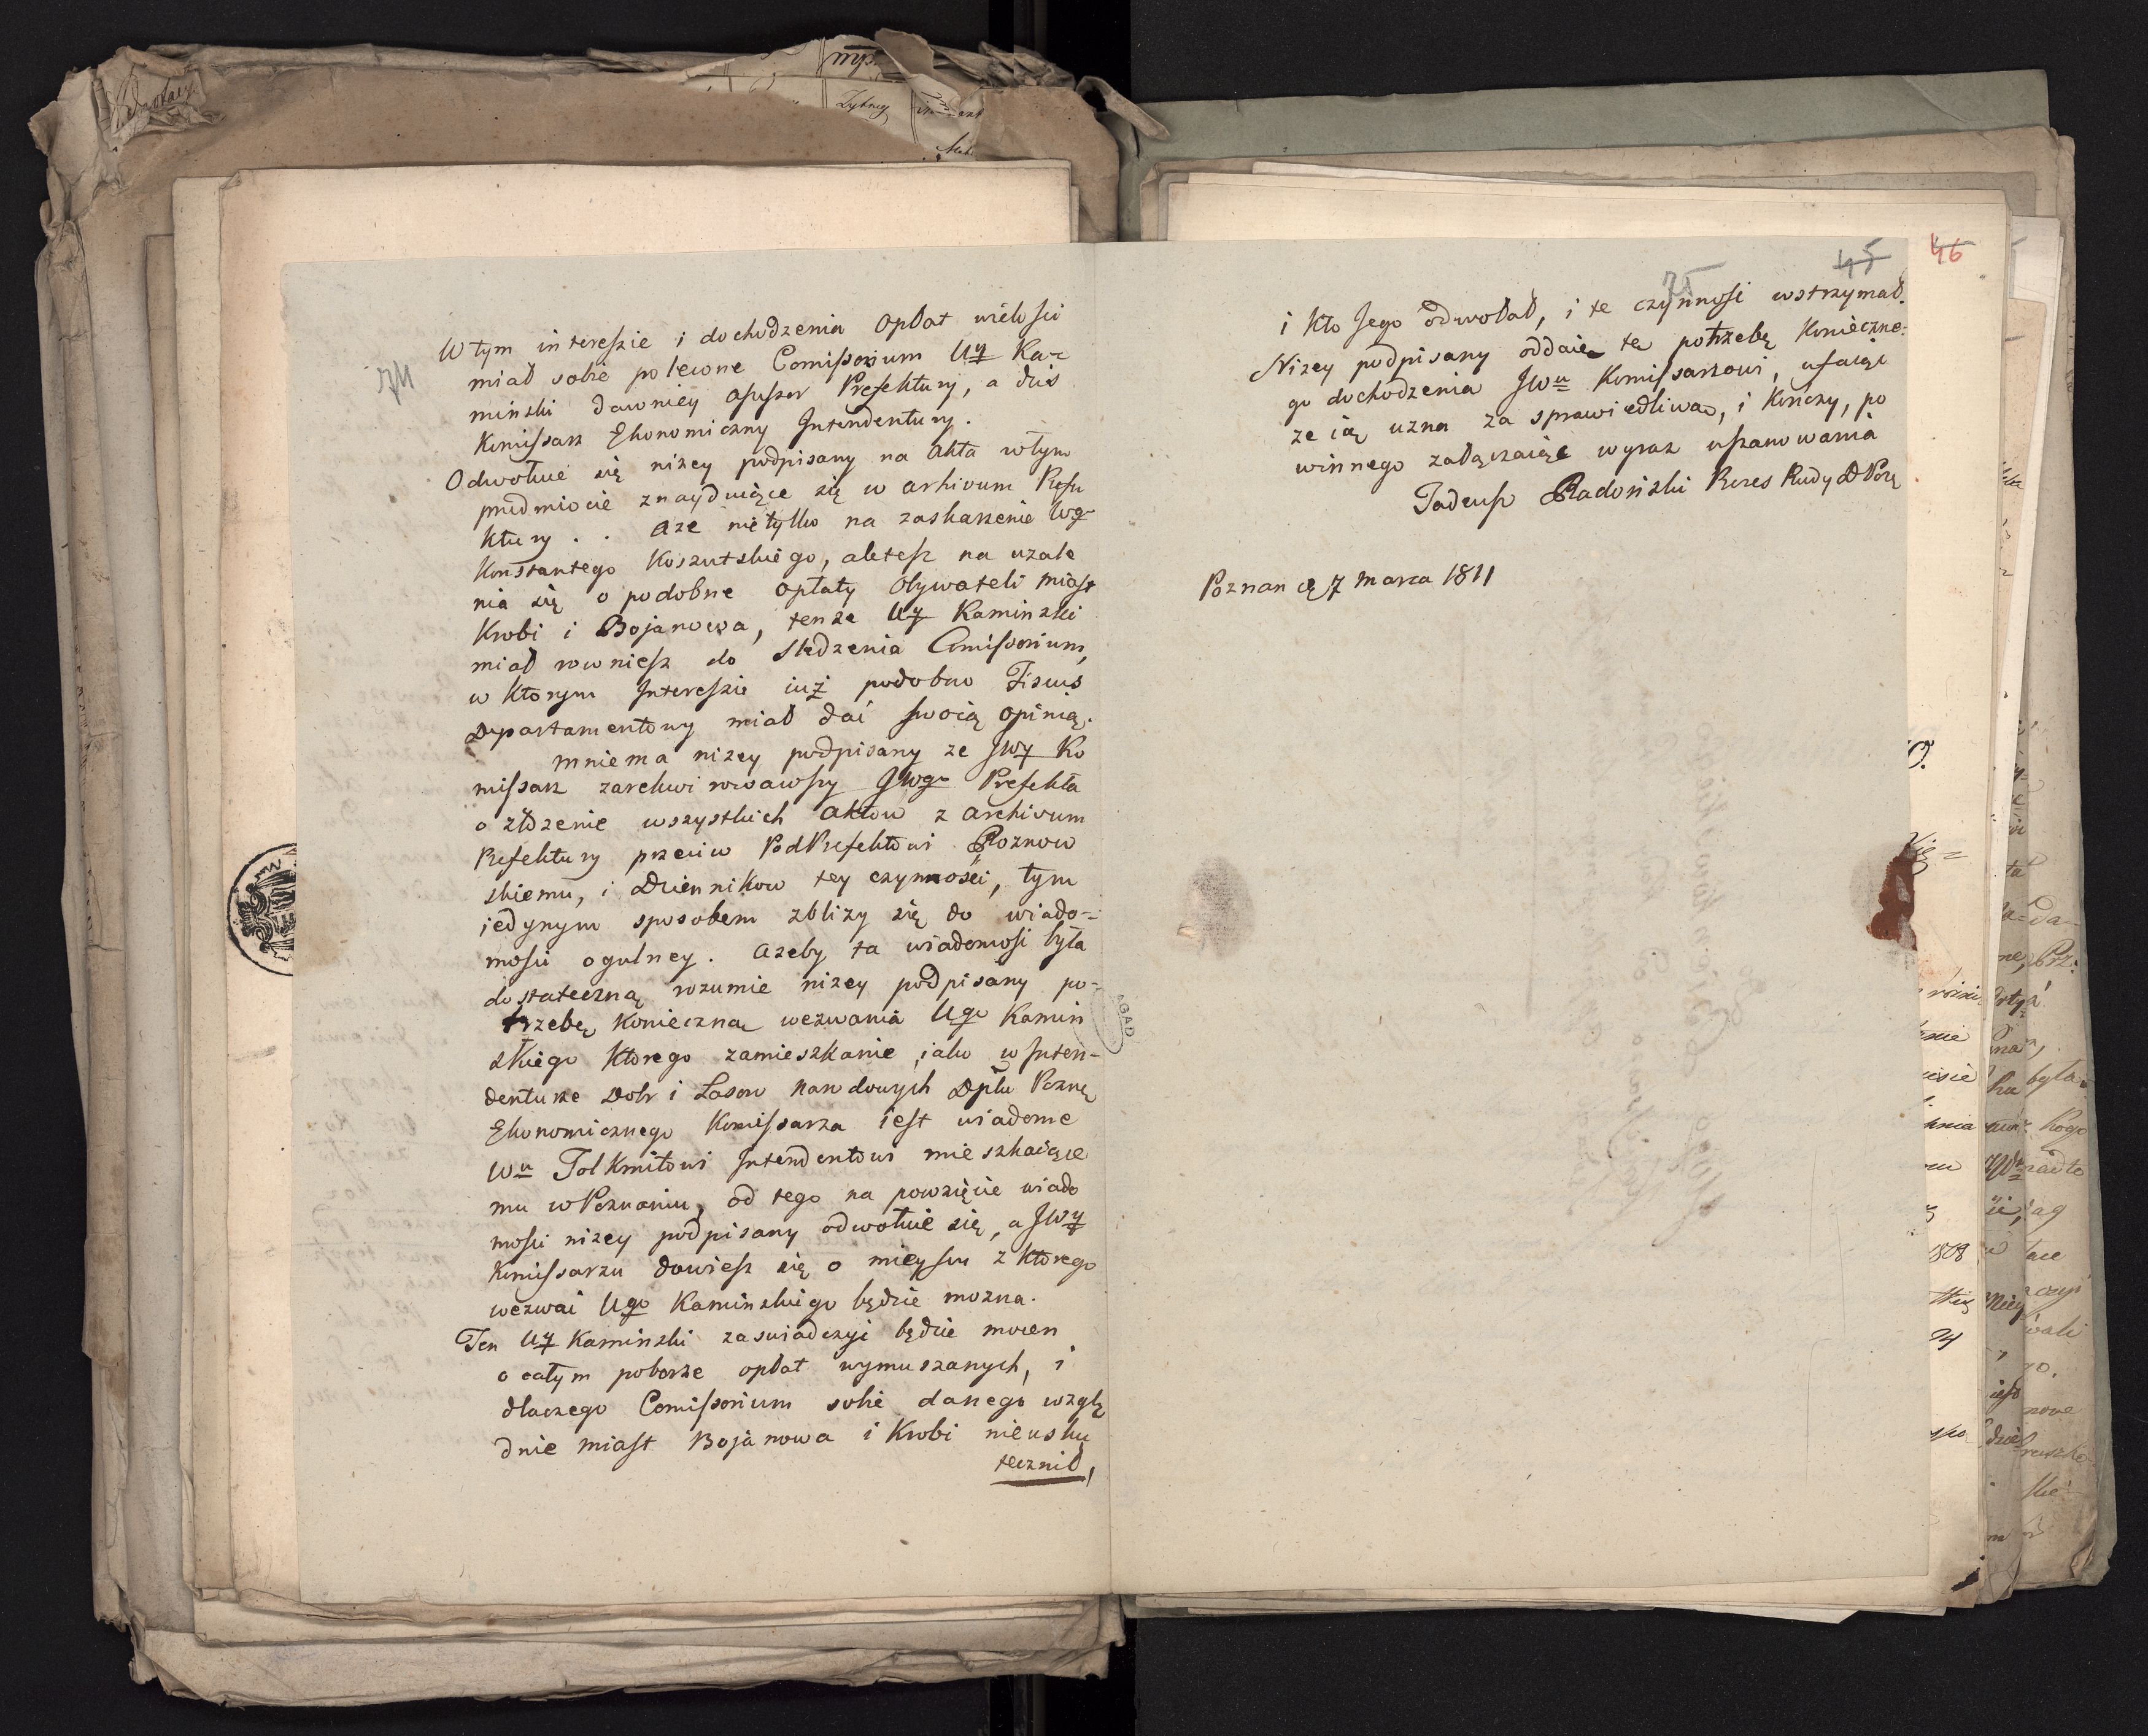 W tym interessie i dochodzenia opłat wielości
miał sobie polecone Comissorium Uy Ka=
minski dawniey assessor Prefektury, a dziś
Komissarz Ekonomiczny Intendentury.
Odwołuie się niżey podpisany na akta w tym
przedmiocie znayduiące się w archivum Prefe
ktury . . aże nie tylko na zaskarzenie Wgo
Konstantego Koszutskiego, ale tesz na uzala
nia się o podobne opłaty Obywateli miast
Krobi i Bojanowa, tenze Uy Kaminski
miał rowniesz do sledzenia Comissorium,
w ktorym Interessie iuż podobno Fiscus
Departamentowy miał dać swoią opinią.
mniema nizey podpisany ze JWy Ko
missarz zarekwirowawszy JWgo Prefekta
o złozenie wszystkich aktow z archivum
Prefektury przeciw PodPrefektowi Roznow
skiemu, i Dziennikow tey czynności, tym
iedynym sposobem zblizy się do wiado=
mości ogulney. Azeby ta wiadomość była
dostateczną rozumie nizey podpisany po=
trzebę konieczną wezwania Ugo Kamin
skiego ktorego zamieszkanie, iako w Inten-
denturze Dobr i Lasow narodowych Dptu Pozng
Ekonomicznego Komissarza iest wiadome
Wu Tolkmitowi Intendentowi mieszkaiące
mu w Poznaniu, od tego na powzięcie wiado
mości nizey podpisany odwołuie się, a JWy
Komissarzu dowiesz się o mieyscu z ktorego
wezwać Ugo Kaminskiego będzie mozna.
Ten Uy Kaminski zaswiadczyć będzie mocen
o całym poborze opłat wymuszanych, i
dlaczego Comissorium sobie danego wzglę
dnie miast Bojanowa i Krobi nieusku
tecznił,
45
46
75
i kto Jego odwołał, i te czynności wstrzymał.
Nizey podpisany oddaie tę potrzebę konieczne=
go dochodzenia JWu Komissarzowi, ufaiąc
ze ią uzna za sprawiedliwą, i konczy, po
winnego załączaiąc wyraz uszanowania
Tadeusz Radoński Prezes Rady D Pozg
Poznan d 7 marca 1811
AGAD